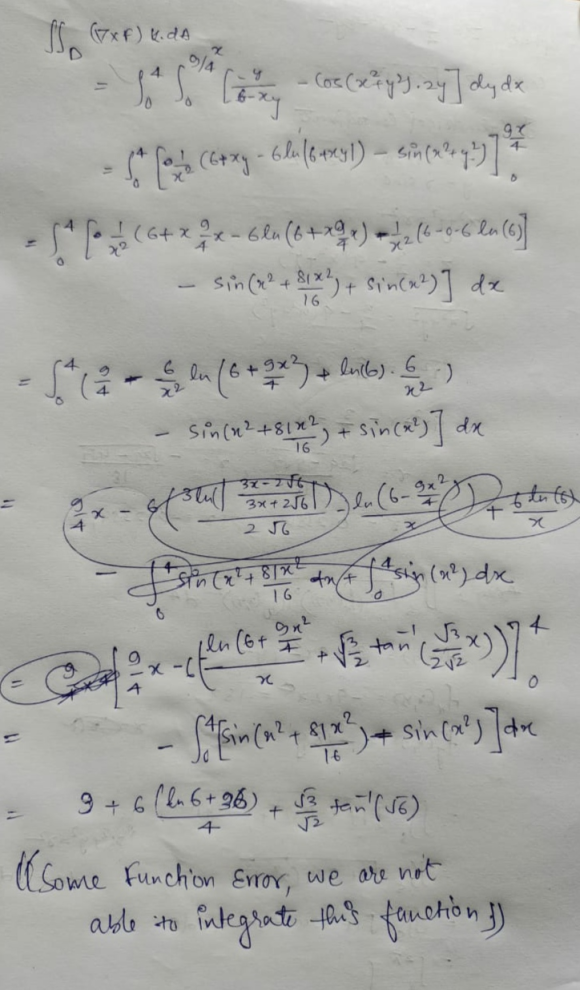 ∬_D (∇×F) k.dA
= ∫₀⁴ ∫₀^{9/4 x} [-y/(6-xy) - Cos(x²+y²).2y] dydx
= ∫₀⁴ [1/x² (6+xy - 6ln|6+xy|) - sin(x²+y²)]₀^{9x/4}
= ∫₀⁴ [1/x² (6+x 9/4 x - 6ln(6+x 9/4 x) - 1/x² (6-0-6 ln(6)]
- sin(x² + 81x²/16) + sin(x²)] dx
= ∫₀⁴ (9/4 - 6/x² ln(6 + 9x²/4) + ln(6). 6/x² )
- sin(x² + 81x²/16) + sin(x²)] dx
= 9/4 x - 6 (3ln(|(3x-2√6)/(3x+2√6)|)/(2√6) - ln(6-9x²/4)/x) + 6ln(6)/x
- ∫₀⁴ sin(x² + 81x²/16 dx + ∫₀⁴ sin(x²) dx
= [9/4 x - 6(ln(6+ 9x²/4)/x + √3/2 tan⁻¹(√3/(2√2) x))]₀⁴
= - ∫₀⁴ [sin(x² + 81x²/16) + sin(x²)] dx
= 9 + 6 (ln 6+36)/4 + √3/√2 tan⁻¹(√6)
((Some Function Error, we are not
able to integrate this function))